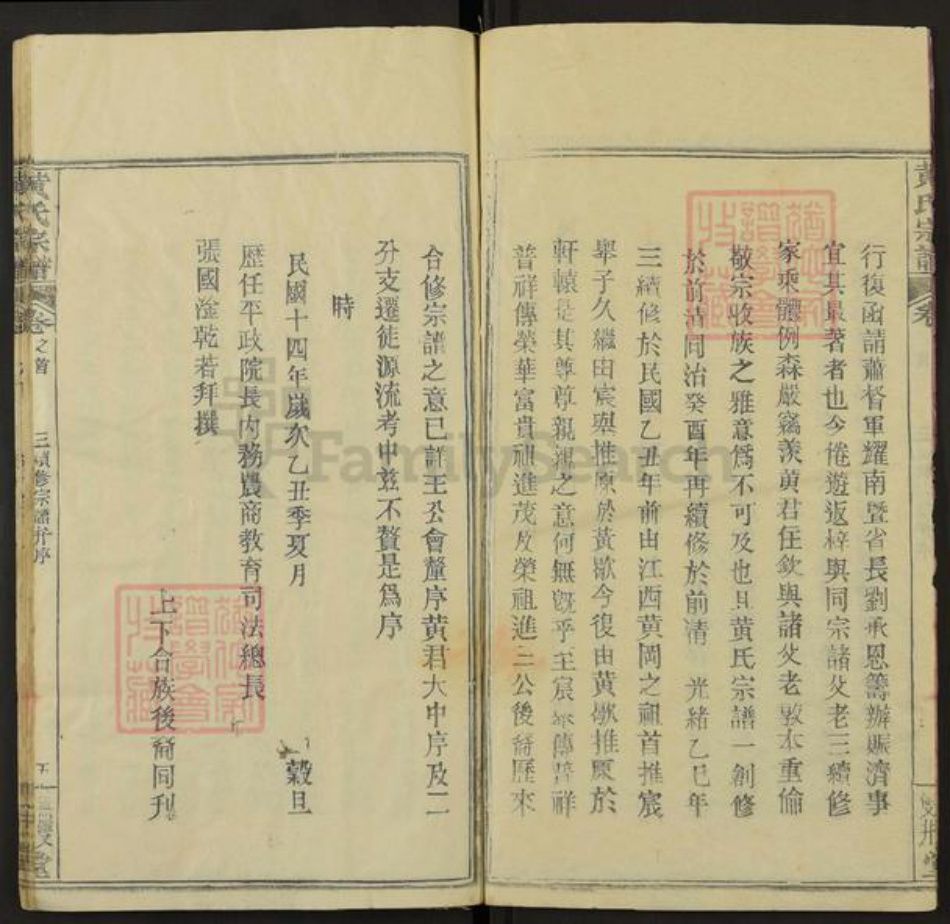 行復函請蕭督軍耀南暨省長劉承恩籌辦賑濟事
宜其最著者也今倦遊返梓與同宗諸父老三續修
家乘體例森嚴竊羨黄君任欽與諸父老敦本重倫
敬宗收族之雅意為不可及也且黄氏宗譜一創修
於前清同治癸酉年再續修於前清 光緒乙巳年
三續修於民國乙丑年前由江西黄岡之祖首推宸
舉子久繼由宸與推原於黄歇今復由黄歇推原於
軒轅是其尊尊親親之意何無旣乎至宸 傳普祥
普祥傳榮華富貴祖進茂及榮祖進二公後裔歷來
合修宗譜之意已詳王公會釐序黄君大中序及二
分支遷徒源流考中茲不贅是為序
時
民國十四年歲次乙丑季夏月 穀旦
歷任平政院長內務農商教育司法總長
張國淦乾若拜撰
上下合族後裔同刋
黄氏宗譜
卷之首
三續修宗譜弁序
五
黄氏宗譜
卷
FamilySearch